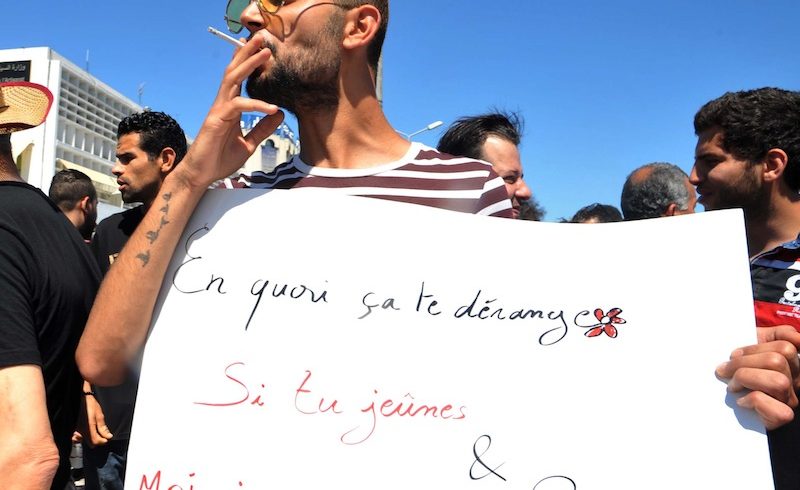 وزارة
En quoi ça te dérange
Si tu jeûnes
&
Moi